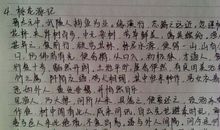 4. 桃花源记
晋太元中，武陵人捕鱼为业，缘溪行，忘路之远近，忽逢
花林，夹岸数百步，中无杂树，芳草鲜美，落英缤纷，渔
甚异之。复前行，欲穷其林。林尽水源，便得一山，山有小
口，仿佛若有光，便舍船，从口入。初极狭，才通人，复行
十步，豁然开朗。土地平旷，屋舍俨然，有良田美池桑
竹之属。阡陌交通，鸡犬相闻。其中往来种作，男女衣
悉如外人。黄发垂髫，并怡然自乐。
见渔人，乃大惊，问所从来。具答之。便要还家，设酒杀
作食。村中闻有此人，咸来问讯。自云先世避秦时乱，率妻
邑人来此绝境，不复出焉，遂与外人间隔。问今是